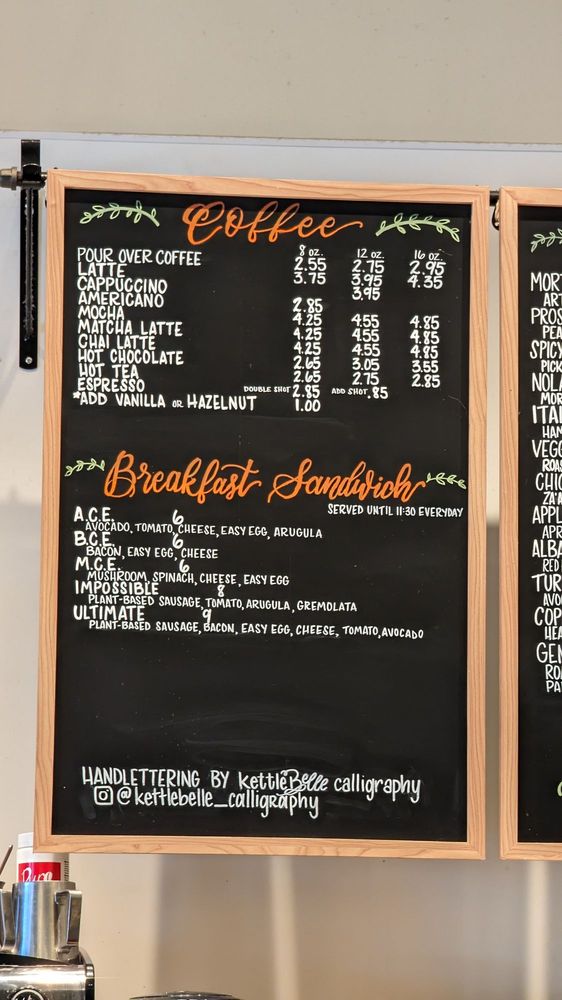 Coffee
8 oz. 12 oz. 16 oz.
POUR OVER COFFEE 2.55 2.75 2.95
LATTE 3.75 3.95 4.35
CAPPUCCINO 3.95
AMERICANO 2.85
MOCHA 4.25 4.55 4.85
MATCHA LATTE 4.25 4.55 4.85
CHAI LATTE 4.25 4.55 4.85
HOT CHOCOLATE 2.65 3.05 3.55
HOT TEA 2.65 2.75 2.85
ESPRESSO DOUBLE SHOT 2.85 ADD SHOT .85
*ADD VANILLA OR HAZELNUT 1.00
Breakfast Sandwich
SERVED UNTIL 11:30 EVERYDAY
A.C.E. 6
AVOCADO, TOMATO, CHEESE, EASY EGG, ARUGULA
B.C.E. 6
BACON, EASY EGG, CHEESE
M.C.E. 6
MUSHROOM, SPINACH, CHEESE, EASY EGG
IMPOSSIBLE 8
PLANT-BASED SAUSAGE, TOMATO, ARUGULA, GREMOLATA
ULTIMATE 9
PLANT-BASED SAUSAGE, BACON, EASY EGG, CHEESE, TOMATO, AVOCADO
HANDLETTERING BY KettleBelle calligraphy
@kettlebelle_calligraphy